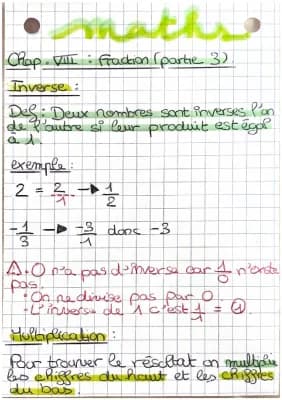 maths
Chap. VIII : Fraction (partie 3).
Inverse :
Def : Deux nombres sont inverses l'un
de l'autre si leur produit est égal
à 1.
exemple :
2 = 2/1 → 1/2
-1/3 → -3/1 donc -3
⚠. 0 n'a pas d'inverse car 1/0 n'existe
pas.
• On ne divise pas par 0.
- L'inverse de 1 c'est 1/1 = 1.
Multiplication :
Pour trouver le résultat on multiplie
les chiffres du haut et les chiffres
du bas.